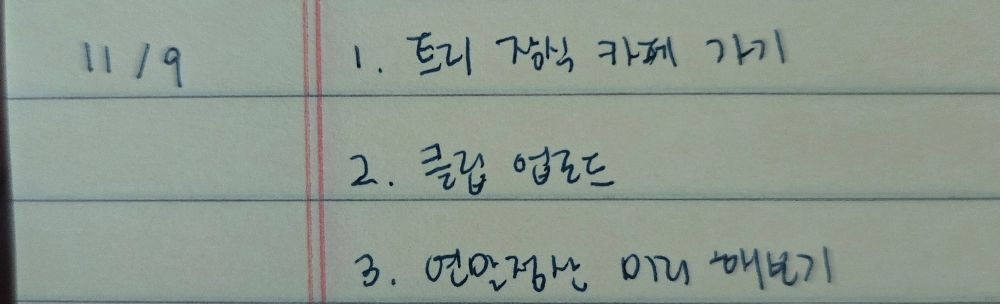 11/9 1. 트리 장식 카페 가기
2. 클립 업로드
3. 연말정산 미리 해보기